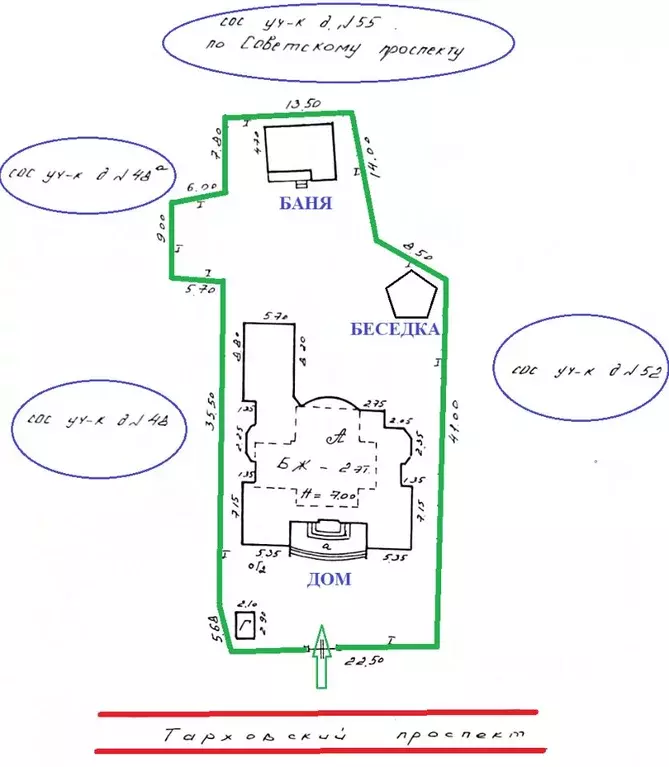 сос уч-к д.N55
по Советскому проспекту
13.50
7.80
4.70
14.00
сос уч-к д N 48ª
6.00
БАНЯ
9.00
8.50
5.70
5.70
БЕСЕДКА
8.80
8.20
сос уч-к д N 52
2.75
1.35
2.05
сос уч-к д N 48
35.50
2.25
А
2.35
41.00
БЖ - 2эт.
1.35
Н = 7.00
1.35
7.15
7.15
а
5.35
5.35
Г2
ДОМ
2.10
Г
2.90
5.68
22.50
Тарховский проспект